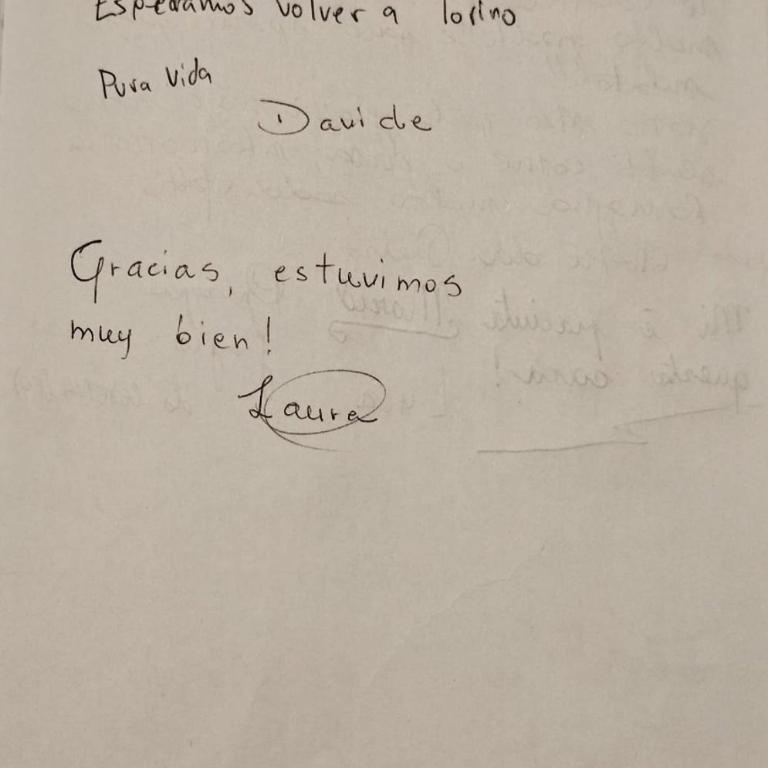 Esperamos volver a Torino
Pura Vida
Davide
Gracias, estuvimos
muy bien!
Laura